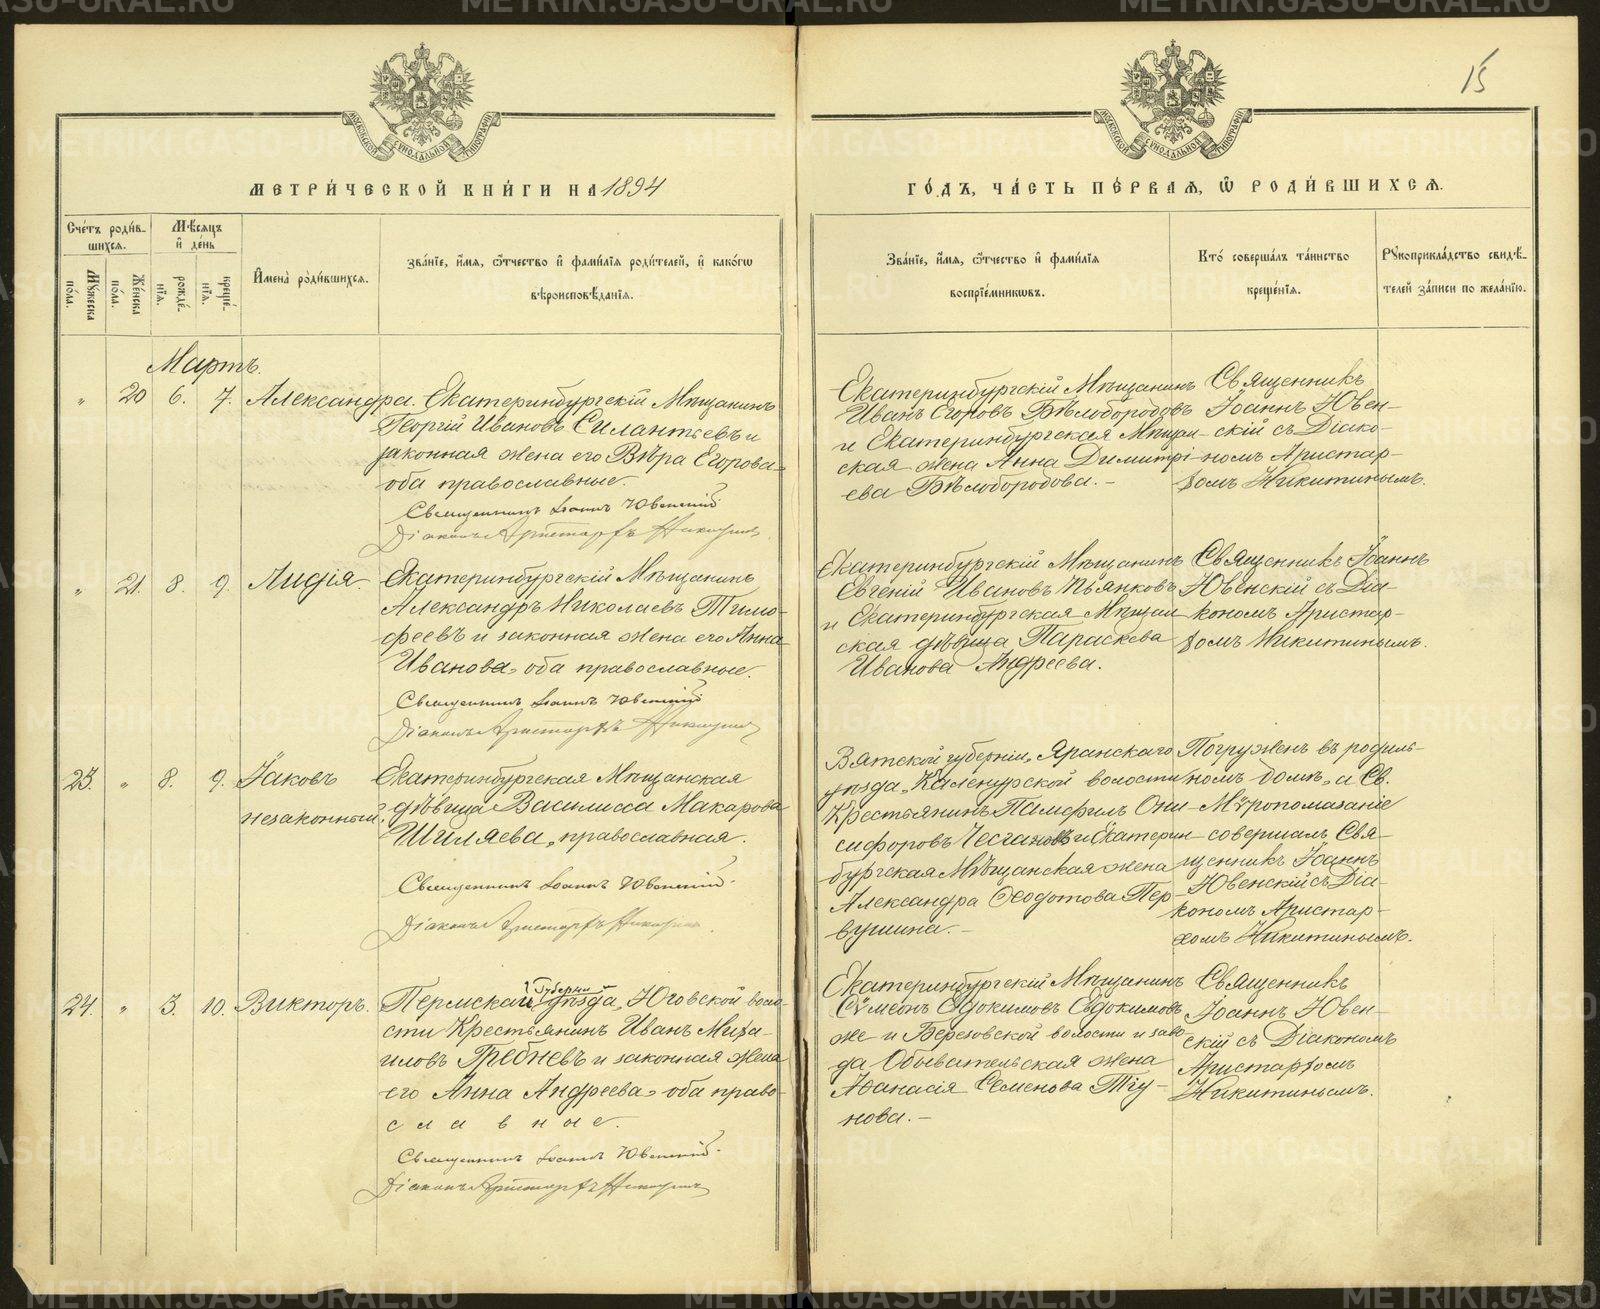 15
МЕТРИЧЕСКОЙ КНИГИ НА 1894
ГОДЪ, ЧАСТЬ ПЕРВАЯ, Ѿ РОДИВШИХСЯ.
Счетъ родив-
шихся.
Мужеска
пола.
Женска
пола.
Мѣсяцъ
и день
рожде-
нія.
креще-
нія.
Имена родившихся.
Званіе, имя, ѿтчество и фамилія родителей, и какогѡ
вѣроисповѣданія.
Званіе, имя, ѿтчество и фамилія
воспріемникѡвъ.
Кто совершалъ таинство
крещенія.
Рукоприкладство свидѣ-
телей записи по желанію.
Мартъ.
„ 20 6. 7. Александра. Екатеринбургскій Мѣщанинъ
Георгій Ивановъ Силантьевъ и
законная жена его Вѣра Егорова,
оба православные.
Священникъ Іоаннъ Ювенскій
Діаконъ Аристархъ Никитинъ
Екатеринбургскій Мѣщанинъ
Иванъ Егоровъ Бѣлобородовъ
и Екатеринбургская Мѣщан-
ская жена Анна Димитрі-
ева Бѣлобородова.-
Священникъ
Іоаннъ Ювен-
скій съ Діако-
номъ Аристар-
хомъ Никитинымъ.
„ 21. 8. 9. Лидія. Екатеринбургскій Мѣщанинъ
Александръ Николаевъ Тимо-
феевъ и законная жена его Анна
Иванова, оба православные.
Священникъ Іоаннъ Ювенскій
Діаконъ Аристархъ Никитинъ
Екатеринбургскій Мѣщанинъ
Евгеній Ивановъ Пьянковъ
и Екатеринбургская Мѣщан
ская дѣвица Параскева
Иванова Андреева.
Священникъ Іоаннъ
Ювенскій съ Діа-
кономъ Аристар-
хомъ Никитинымъ.
23. „ 8. 9. Іаковъ
незаконный
Екатеринбургская Мѣщанская
дѣвица Василисса Макарова
Шиляева, православная.
Священникъ Іоаннъ Ювенскій.
Діаконъ Аристархъ Никитинъ.
Вятской губерніи, Яранскаго
уѣзда, волости
Крестьянинъ Памфилъ Они-
сифоровъ и Екатерин-
бургская Мѣщанская жена
Александра Ѳеодотова Пер-
вушина.-
Погруженъ въ родиль-
номъ домѣ, а Св.
Мѵропомазаніе
совершалъ Свя-
щенникъ Іоаннъ
Ювенскій съ Діа-
кономъ Аристар-
хомъ Никитинымъ.
24. „ 3. 10. Викторъ. Пермской Губерніи уѣзда, Юговской воло-
сти Крестьянинъ Иванъ Миха-
иловъ Гребневъ и законная жена
его Анна Андреева, оба право-
славные.
Священникъ Іоаннъ Ювенскій.
Діаконъ Аристархъ Никитинъ
Екатеринбургскій Мѣщанинъ
Сѵмеонъ Евдокимовъ Евдокимовъ
же и Березовской волости и заво
да Обывательская жена
Аѳанасія Семенова Тіу-
нова.-
Священникъ
Іоаннъ Ювен-
скій съ Діакономъ
Аристархомъ
Никитинымъ.